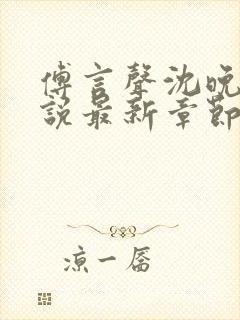 傅言聲沈晚
說最新章節
涼一屬